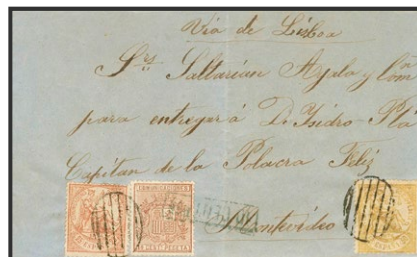 Via de Lisboa
Srs Saltarian Ayala y Comn
para entregar á D. Isidro Plá
Capitan de la Polacra Feliz
Montevideo
COMUNICACIONES